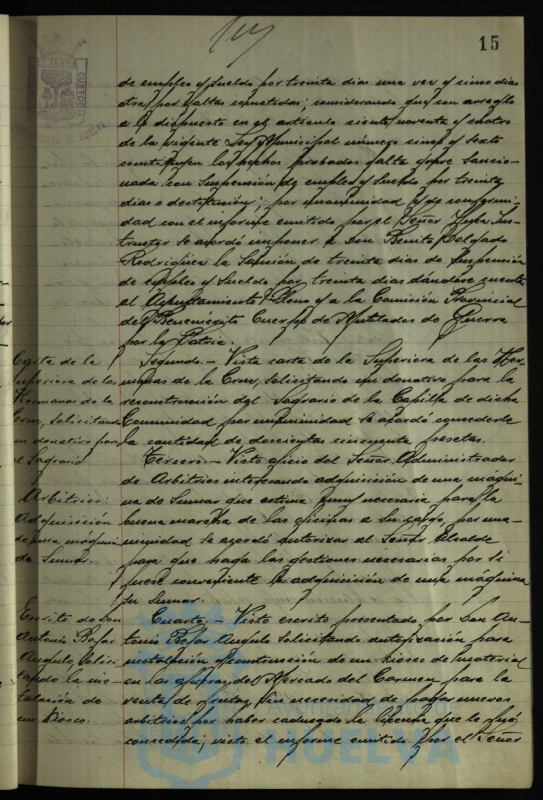 15
de empleo y sueldo por treinta dias una vez y cinco dias
otra por faltas cometidas; considerando que con arreglo
a lo dispuesto en el articulo ciento noventa y cuatro
de la vigente Ley Municipal número cinco y sexto
constituyen los hechos probados falta grave sancio-
nada con suspensión de empleo y sueldo por treinta
dias o destitución; por unanimidad y de conformi-
dad con el informe emitido por el Señor Juez Ins-
tructor se acordó imponer a Don Benito Delgado
Rodriguez la sanción de treinta dias de suspensión
de empleo y sueldo por treinta dias dándose cuenta
al Ayuntamiento Pleno y a la Comisión Provincial
del Benemérito Cuerpo de Mutilados de Guerra
por la Patria.
Carta de la
Superiora de las
Hermanas de la
Cruz, solicitando
un donativo para
el Sagrario.
Segundo.- Vista carta de la Superiora de las Her-
manas de la Cruz, solicitando un donativo para la
reconstrucción del Sagrario de la Capilla de dicha
Comunidad por unanimidad se acordó concederle
la cantidad de doscientas cincuenta pesetas.
Arbitrios:
Adquisición
de una máquina
de Sumar.
Tercero.- Visto oficio del Señor Administrador
de Arbitrios interesando adquisición de una máqui-
na de Sumar que estima muy necesaria para la
buena marcha de las oficinas a su cargo, por una-
nimidad se acordó autorizar al Señor Alcalde
para que haga las gestiones necesarias por si
fuese conveniente la adquisición de una máquina
de Sumar.
Escrito de Don
Antonio Bofar
Angulo, solici-
tando la ins-
talación de
un kiosco.
Cuarto.- Visto escrito presentado por Don An-
tonio Bofar Angulo solicitando autorización para
instalación y construcción de un kiosco de material
en las afueras del Mercado del Carmen para la
venta de frutas, sin necesidad de pagar nuevos
arbitrios por haber caducado la licencia que le fué
concedida; visto el informe emitido por el Señor
HUELVA